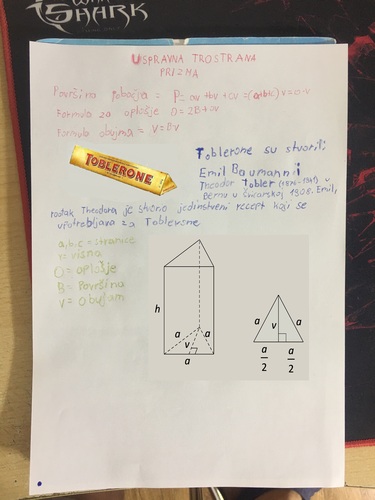 SHARK
USPRAVNA TROSTRANA
PRIZMA
Površina pobočja = P=av+bv+cv=(a+b+c)
Formula za oplošje O=2B+
Formula obujma = V=Bv
TOBLERONE
Toblerone su stvorili
Emil Baumann i
Theodor Tobler u
Bernu u Švicarskoj 1908. Emil,
rođak Theodora je stvorio jedinstveni recept koji se
upotrebljava za Toblerone
a,b,c = stranice
v = visina
O = oplošje
B = Površina
V = obujam
h
a
a
v
a
a
v
a
a
2
a
2